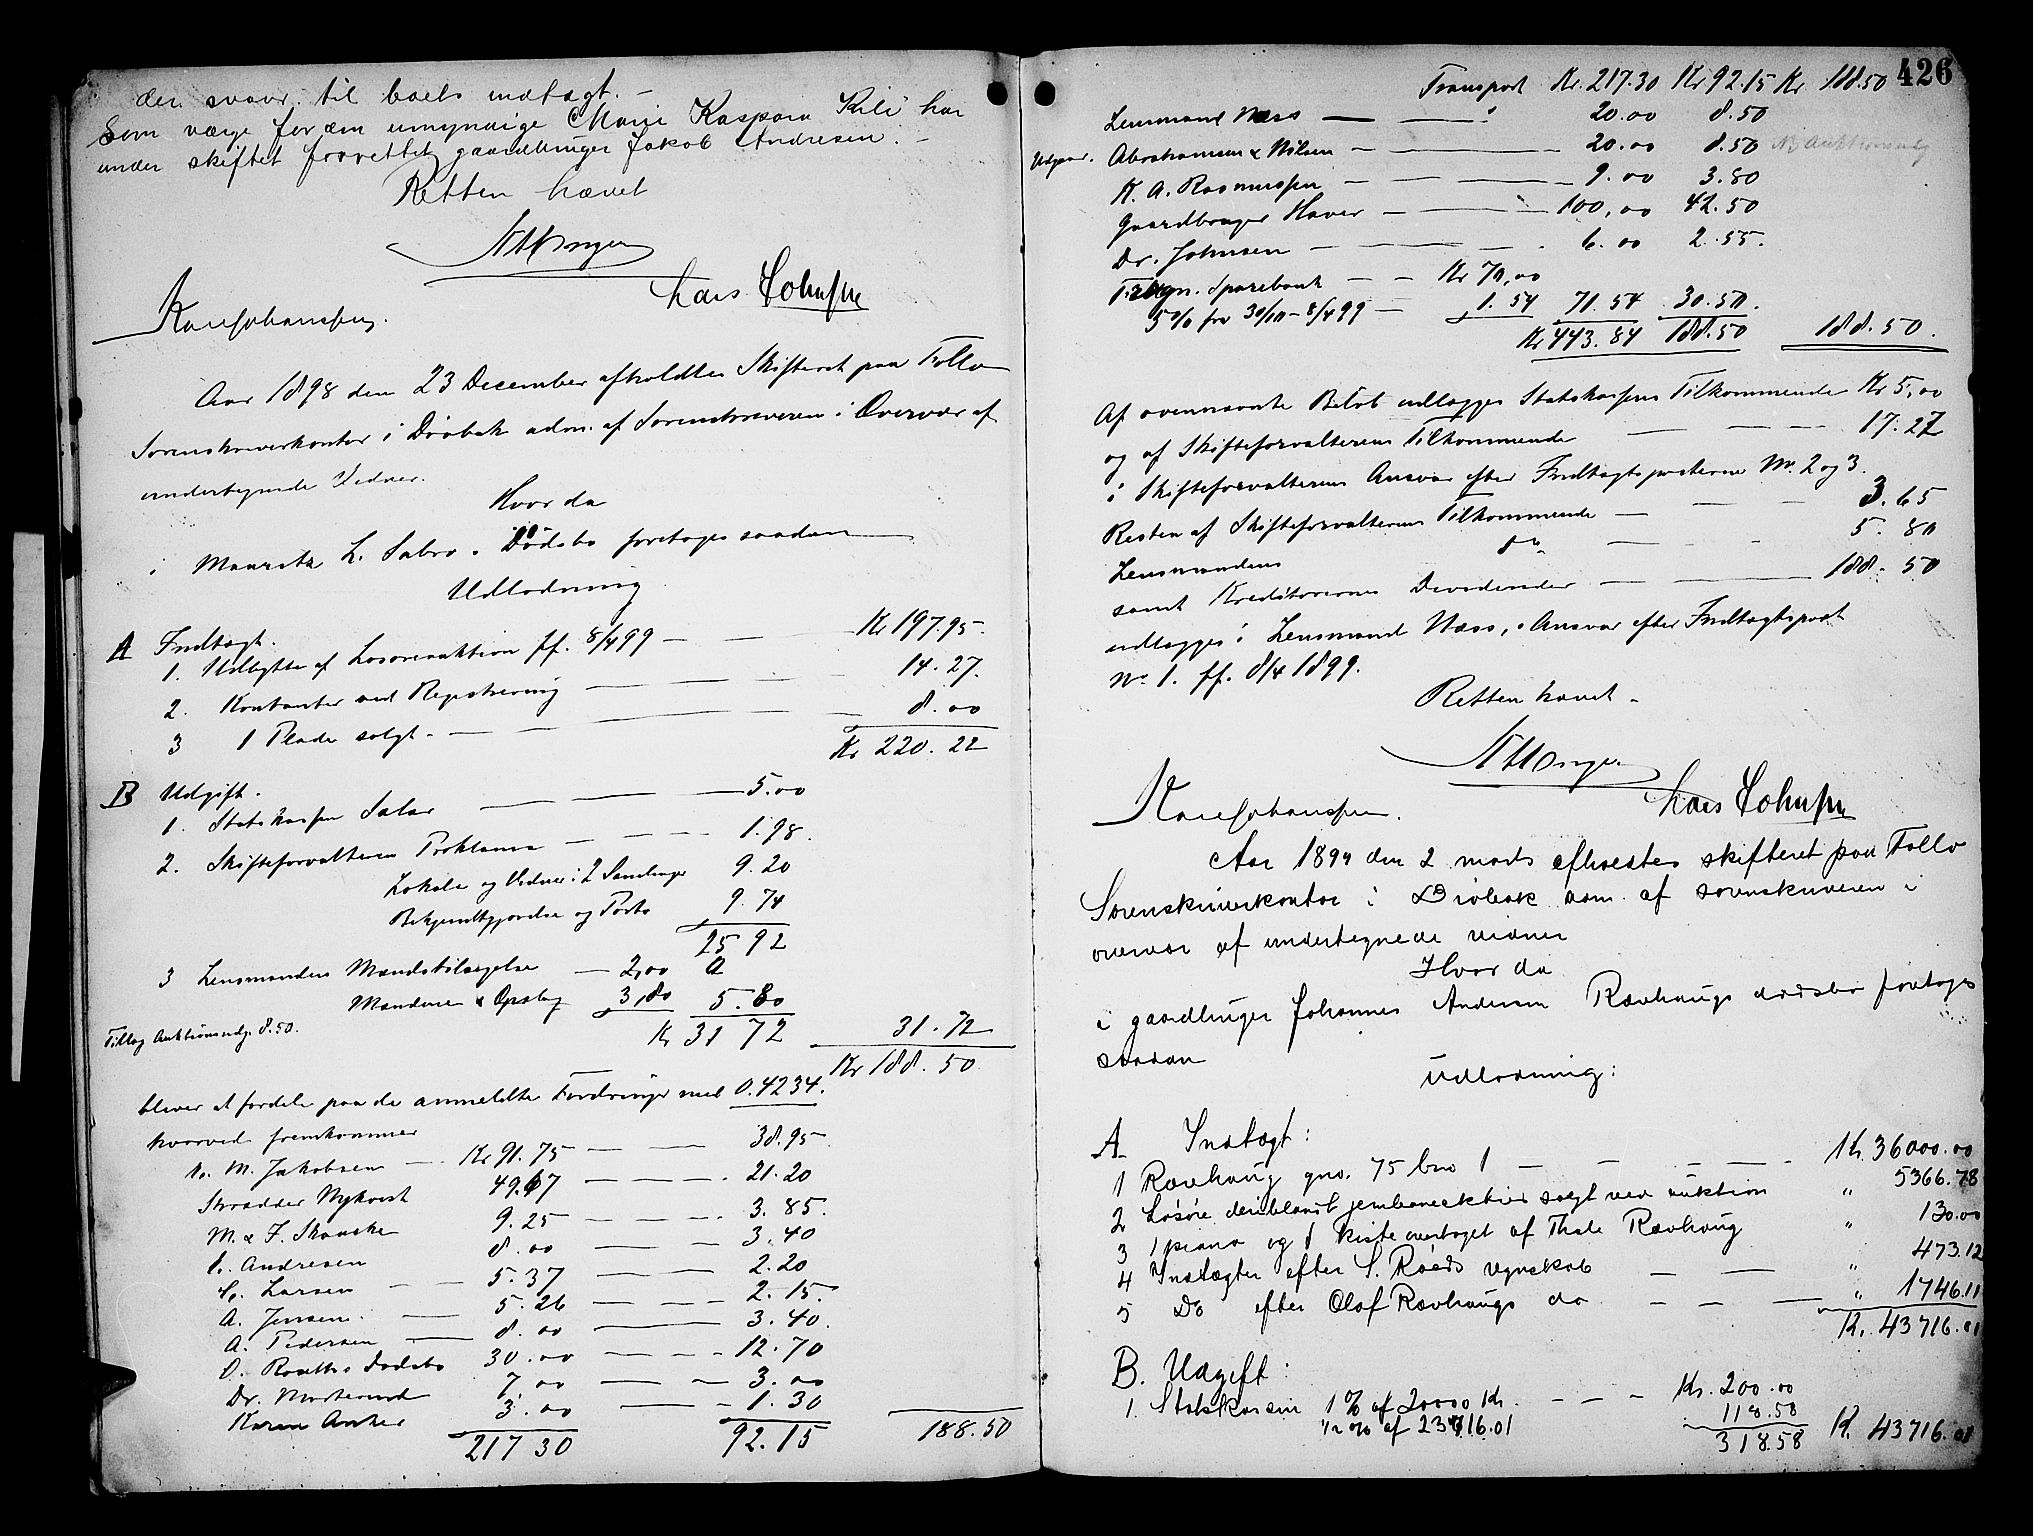 der svarer til boets indtægt. -
Som værge for den umyndige Marie Kaspara Kili har
under skiftet forrettet gaardbruger Jakob Andresen. -
Retten hævet
Lars Johnsen
Karl Johanssen.
Aar 1898 den 23 December afholdtes Skifteret paa Follo
Sorenskriverkontor i Drøbak adm. af Sorenskriveren i Overvær af
undertegnede Vidner.
Hvor da
i Mauritz L. Sabro s Dødsbo foretoges saadan
Udlodning
A Indtægt.
1. Udbytte af Løsøreauktion ff. 8/4 99 — — Kr 197.95.
2. Kontanter ved Registrering — — — 14.27.
3 1 Plade solgt. — — — 8.00
Kr 220.22
B Udgift.
1. Statskassen Salær — — — 5.00
2. Skifteforvalteren Proklama — — — 1.98.
Lokale og Vidner i 2 Samlinger 9.20
Bekjendtgjørelse og Porto 9.74
25 92
3 Lensmandens Mandstilsigelse — 2,00
Mandører & Opslag 3,80 5.80
Tillæg Auktionsudg. 8.50. Kr 31 72 31.72
Kr 188.50
bliver at fordele paa de anmeldte Fordringer med 0.4234.
hvorved fremkommer
M. Jakobsen — Kr 91.75 — — 38.95
Skrædder Nykvist 49.67 — — 21.20
M. & J. Skanske 9.25 — — 3.85.
Andresen 8.00 — — 3.40
C. Larsen — — 5.37 — — 2.20
A. Jensen — 5.26 — — 2.15.
A. Pedersen — 8.00 — — 3.40.
O. Rauths Dødsbo 30.00 — — 12.70
Dr. Mortensrud 7.00 — — 3.00
Karen Anker 3.00 — — 1.30
217 30 92.15 188.50
426
Transport Kr. 217.30 Kr 92.15 Kr 188.50
Lensmand Næss — — 20.00 8.50
Udgaar. Abrahamsen & Nilsen — — 20.00 8.50 NB Auktionsudg
K. A. Rasmussen — — 9.00 3.80
Gaardbruger Haver — — 100,00 42.50
Dr. Johnsen — — 6.00 2.55.
Sparebank — — Kr 70,00
5% fra 30/10 - 8/4 99 — 1.54 71.54 30.50.
Kr 443.84 188.50 188.50.
Af ovennævnte Beløb udlægges Statskassens Tilkommende Kr 5,00
og af Skifteforvalterens Tilkommende — — — 17.27
i Skifteforvalterens Ansvar efter Indtægtsposterne No. 2 og 3.
Resten af Skifteforvalterens Tilkommende — — — 3.65
Lensmandens do — — — 5.80
samt Kreditorernes Devidender — — — 188.50
udlægges i Lensmand Næss, s Ansvar efter Indtægtspost
No 1. ff. 8/4 1899.
Retten hævet -
Karl Johanssen.
Lars Johnsen
Aar 1899 den 2 marts afholdtes skifteret paa Follo
Sorenskriverkontor i Drøbak adm. af sorenskriveren i
overvær af undertegnede vidner
Hvor da
i gaardbruger Johannes Andersen Ravhaugs dødsbo foretoges
saadan
Udlodning:
A Indtægt:
1 Ravhaug gno. 75 bno 1 — — — Kr. 36000.00
2 Løsøre deriblandt jernbaneaktier solgt ved auktion „ 5366.78
3 1 piano og 1 kiste overtaget af Thale Ravhaug „ 130.00
4 Indtægter efter S. Røeds regnskab — — „ 473.12
5 Do efter Olaf Ravhaugs do — — — „ 1746.11
Kr. 43716.01
B. Udgift:
1. Statskassen 1% af 20000 Kr. — — — Kr. 200.00
1/2 % af 23716.01 118.58
318.58 Kr. 43716.01